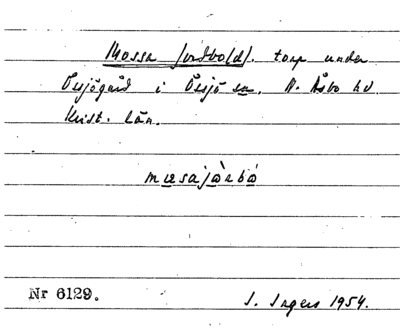 Mossa jordbo(d). torp under
Össjögård i Össjö sn. N. Åsbo hd
Krist. län.
mɯsajo̱rbó
Nr 6129.
I. Ingers 1954.